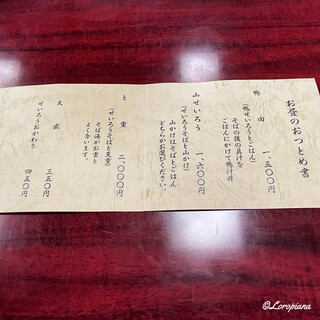 お昼のおつとめ書
鴨田 一、五〇〇円
(鴨せいろうとごはん)
そばの後の具汁を
ごはんにかけて鴨汁丼
山せいろう 一、六〇〇円
(せいろうそばと山かけ)
山かけはそばとごはん
どちらかお選びください。
と重 二、〇〇〇円
(せいろうそばと天重)
そば湯がお重と
よく合います。
大盛 三五〇円
せいろうおかわり 四五〇円
©Loropiana